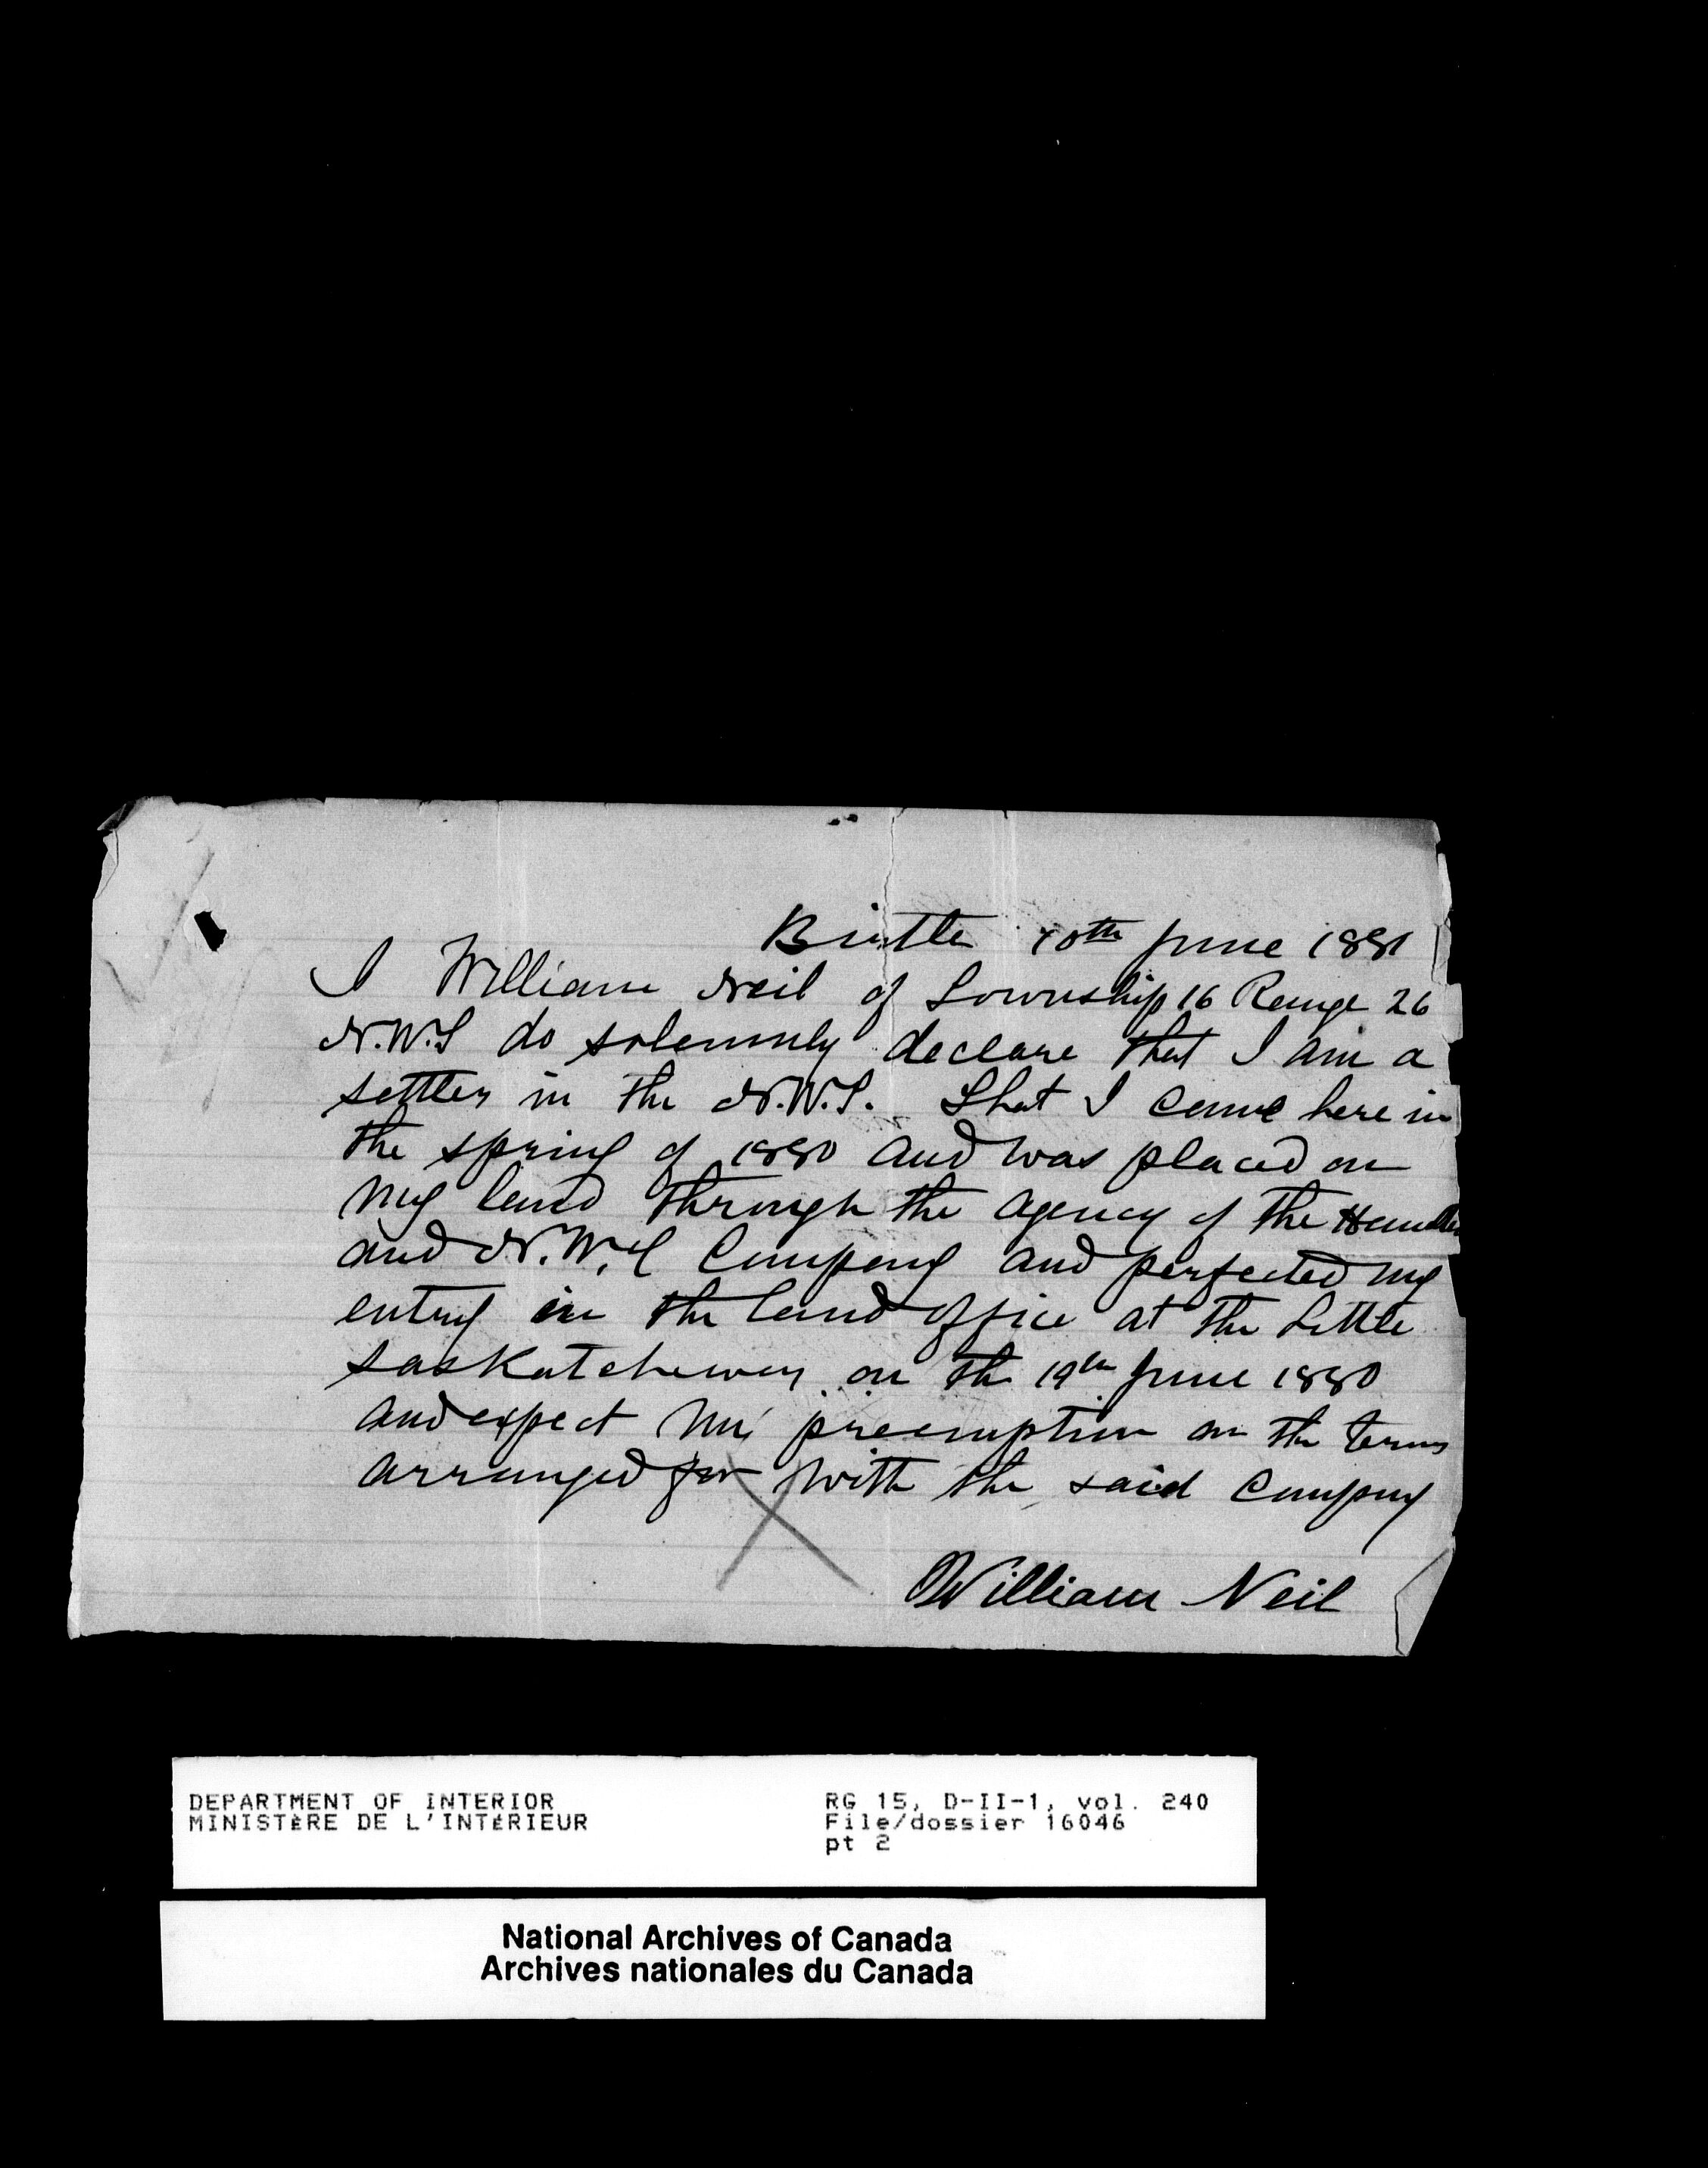 Birtle 10th June 1881
I William Neil of Township 16 Range 26
N.W.T do solemnly declare that I am a
settler in the N.W.T. That I came here in
the spring of 1880 and was placed on
my land through the agency of the
and N.W.C Company and perfected my
entry in the land office at the Little
Saskatchewan on the 19th June 1880
and expect my preemption on the terms
arranged for with the said Company
William Neil
DEPARTMENT OF INTERIOR
MINISTÈRE DE L'INTÉRIEUR
RG 15, D-II-1, vol. 240
File/dossier 16046
pt 2
National Archives of Canada
Archives nationales du Canada